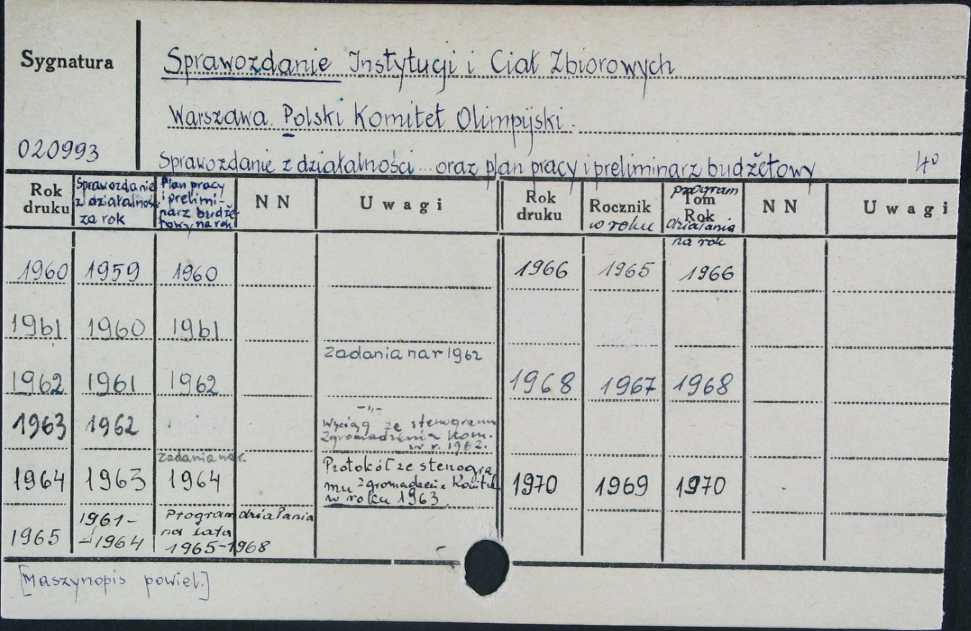 Sygnatura
Sprawozdanie Instytucji i Ciał Zbiorowych
Warszawa. Polski Komitet Olimpijski.
020993
Sprawozdanie z działalności... oraz plan pracy i preliminarz budżetowy 4°
Rok druku
Sprawozdanie z działalności za rok
Plan pracy i prelimi-
narz budże-
towy na rok
NN
Uwagi
Rok druku
Rocznik w roku
program
Tom
Rok
działania
na rok
NN
Uwagi
1960 1959 1960
1966 1965 1966
1961 1960 1961
zadania na r 1962
1962 1961 1962
1968 1967 1968
1963 1962
-„-
Wyciąg ze stenogramu
Zgromadzenia Kom.
w r. 1962.
zadania na r.
1964 1963 1964
Protokół ze stenogra
mu zgromadzenie Komitetu
w roku 1963
1970 1969 1970
1965
1961-
-1964
Program działania
na lata
1965-1968
[Maszynopis powiel.]